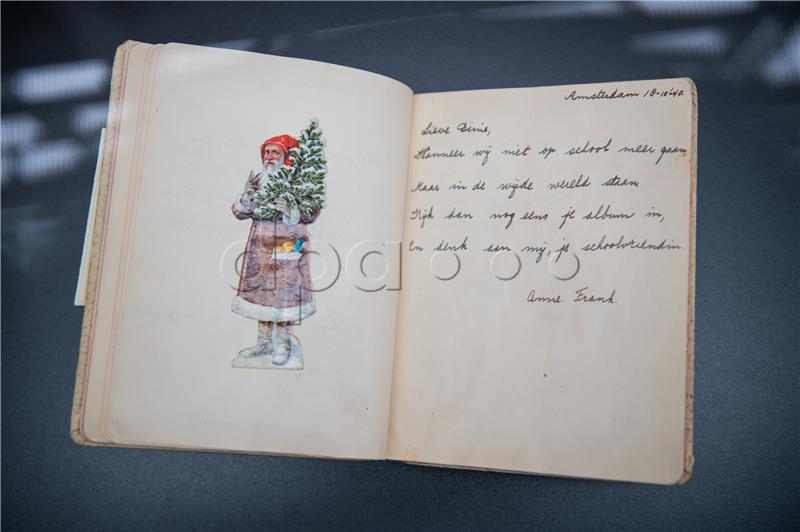 Amsterdam 18-10-'40.
Lieve Dinie,
Wanneer wij niet op school meer gaan,
Maar in de wijde wereld staan,
Kijk dan nog eens je album in,
En denk aan mij, je schoolvriendin.
dpa
Anne Frank.